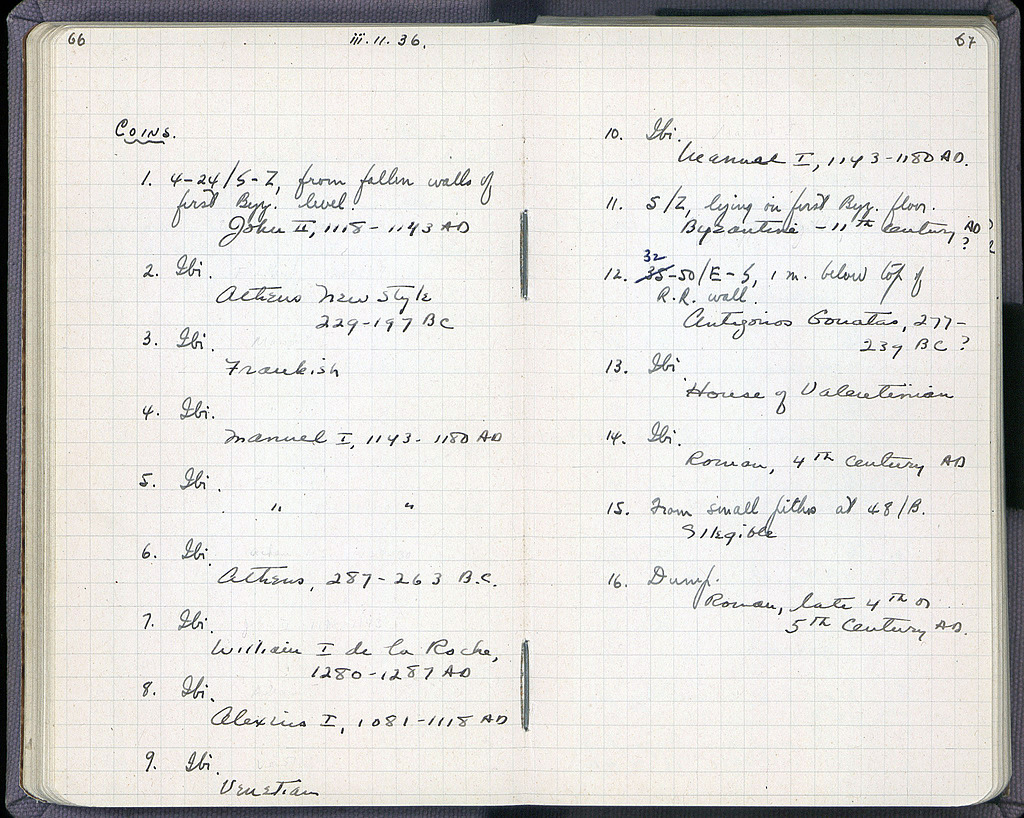 66
iii.11.36.
Coins.
1. 4-24/S-Z, from fallen walls of
first Byz. level.
John II, 1118-1143 AD
2. Ibi.
Athens New Style
229-197 BC
3. Ibi.
Frankish
4. Ibi.
Manuel I, 1143-1180 AD
5. Ibi.
" "
6. Ibi.
Athens, 287-263 B.C.
7. Ibi.
William I de la Roche,
1280-1287 AD
8. Ibi.
Alexius I, 1081-1118 AD
9. Ibi.
Venetian
67
10. Ibi.
Manuel I, 1143-1180 AD.
11. S/Z, lying on first Byz. floor.
Byzantine - 11th century AD?
?
32
12. 35-50/E-S, 1 m. below top of
R.R. wall.
Antigonos Gonatas, 277-
239 BC?
13. Ibi
House of Valentinian
14. Ibi.
Roman, 4th century AD
15. From small pithos at 48/B.
Illegible
16. Dump.
Roman, late 4th or
5th Century AD.